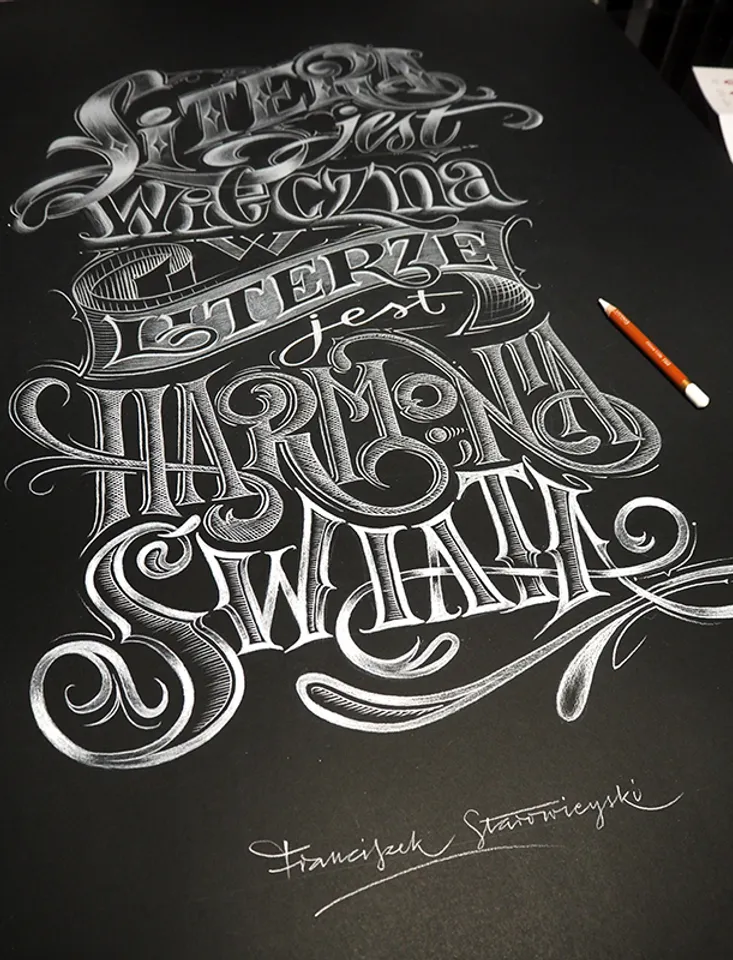 LITERA
jest
wieczna
W
LITERZE
jest
HARMONIA
ŚWIATA
Franciszek Starowieyski